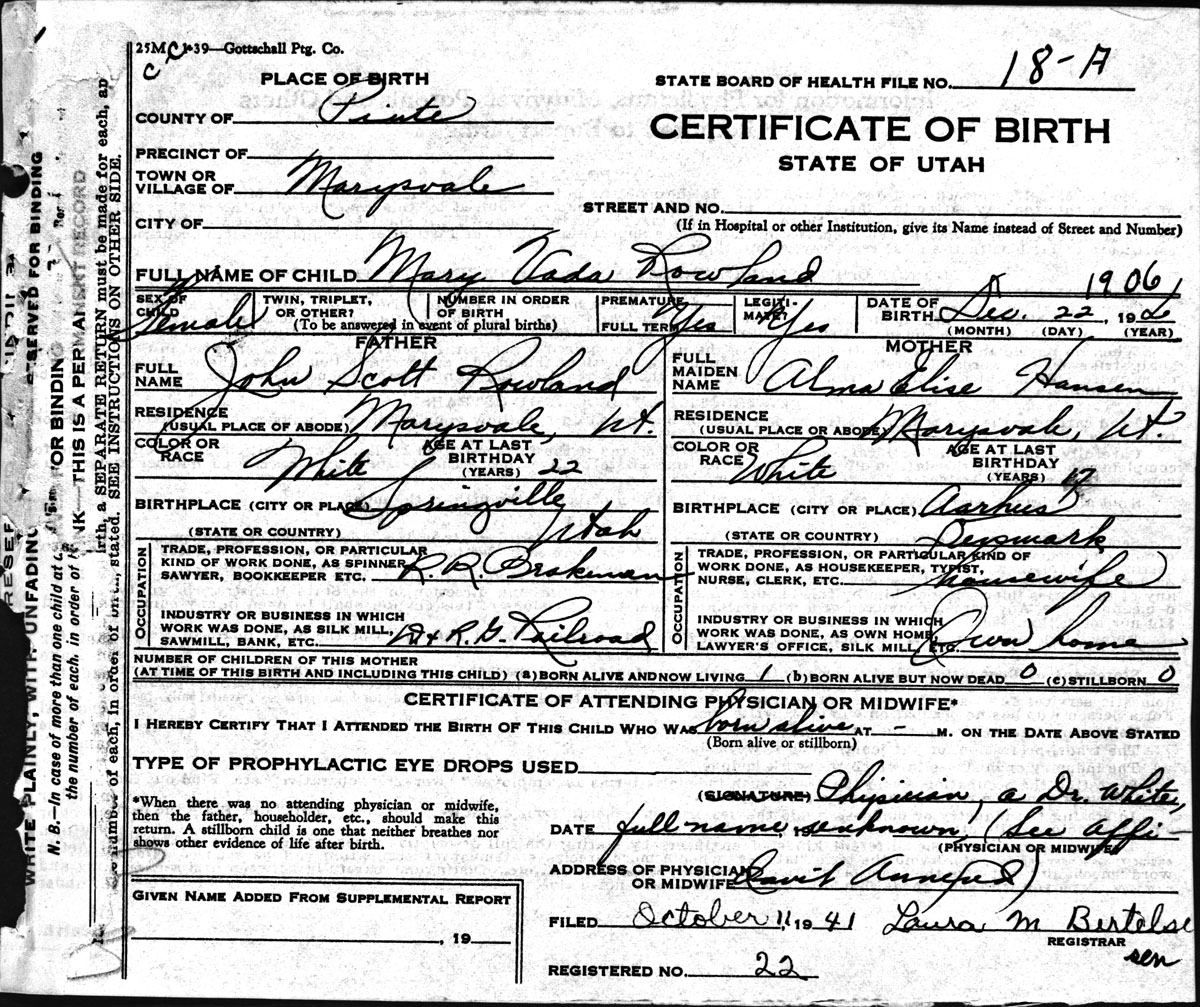 25M 1-39—Gottschall Ptg. Co.
PLACE OF BIRTH
STATE BOARD OF HEALTH FILE NO. 18-A
COUNTY OF Piute
CERTIFICATE OF BIRTH
PRECINCT OF
STATE OF UTAH
TOWN OR
VILLAGE OF Marysvale
STREET AND NO.
(If in Hospital or other Institution, give its Name instead of Street and Number)
CITY OF
FULL NAME OF CHILD Mary Vada Rowland
1906
SEX OF
CHILD Female
TWIN, TRIPLET,
OR OTHER?
NUMBER IN ORDER
OF BIRTH
(To be answered in event of plural births)
PREMATURE
FULL TERM Yes
LEGITI-
MATE? Yes
DATE OF
BIRTH Dec. 22, 190
(MONTH) (DAY) (YEAR)
FATHER
FULL
NAME John Scott Rowland
RESIDENCE
(USUAL PLACE OF ABODE) Marysvale, Ut.
COLOR OR
RACE White
AGE AT LAST
BIRTHDAY
(YEARS) 22
BIRTHPLACE (CITY OR PLACE) Springville
(STATE OR COUNTRY) Utah
OCCUPATION
TRADE, PROFESSION, OR PARTICULAR
KIND OF WORK DONE, AS SPINNER,
SAWYER, BOOKKEEPER ETC. R.R. Brakeman
INDUSTRY OR BUSINESS IN WHICH
WORK WAS DONE, AS SILK MILL,
SAWMILL, BANK, ETC. D & R. G. Railroad
MOTHER
FULL
MAIDEN
NAME Alma Elise Hansen
RESIDENCE
(USUAL PLACE OF ABODE) Marysvale, Ut.
COLOR OR
RACE White
AGE AT LAST
BIRTHDAY
(YEARS) 17
BIRTHPLACE (CITY OR PLACE) Aarhus
(STATE OR COUNTRY) Denmark
OCCUPATION
TRADE, PROFESSION, OR PARTICULAR KIND OF
WORK DONE, AS HOUSEKEEPER, TYPIST,
NURSE, CLERK, ETC. housewife
INDUSTRY OR BUSINESS IN WHICH
WORK WAS DONE, AS OWN HOME,
LAWYER'S OFFICE, SILK MILL, ETC. Own home
NUMBER OF CHILDREN OF THIS MOTHER
(AT TIME OF THIS BIRTH AND INCLUDING THIS CHILD) (a) BORN ALIVE AND NOW LIVING 1 (b) BORN ALIVE BUT NOW DEAD 0 (c) STILLBORN 0
CERTIFICATE OF ATTENDING PHYSICIAN OR MIDWIFE*
I HEREBY CERTIFY THAT I ATTENDED THE BIRTH OF THIS CHILD WHO WAS born alive AT - M. ON THE DATE ABOVE STATED
(Born alive or stillborn)
TYPE OF PROPHYLACTIC EYE DROPS USED
*When there was no attending physician or midwife,
then the father, householder, etc., should make this
return. A stillborn child is one that neither breathes nor
shows other evidence of life after birth.
(SIGNATURE) Physician, a Dr. White,
DATE full name unknown, (See affi-
(PHYSICIAN OR MIDWIFE)
ADDRESS OF PHYSICIAN
OR MIDWIFE davit annexed)
GIVEN NAME ADDED FROM SUPPLEMENTAL REPORT
, 19
FILED October 11, 1941 Laura M Bertelsen
REGISTRAR
REGISTERED NO. 22
RESERVED FOR BINDING
WRITE PLAINLY, WITH UNFADING INK—THIS IS A PERMANENT RECORD
N. B.—In case of more than one child at birth, a SEPARATE RETURN must be made for each, and
the number of each, in order of birth, stated. SEE INSTRUCTIONS ON OTHER SIDE.